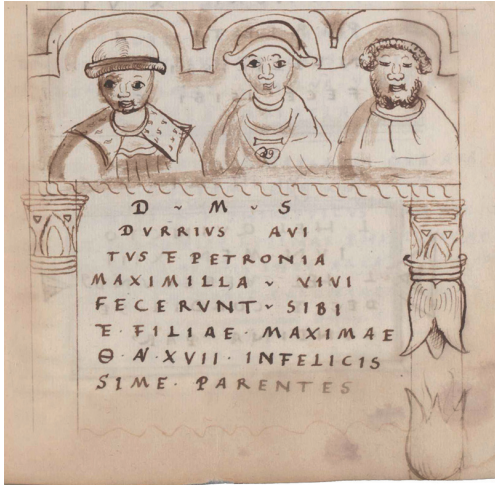 D ᵕ M ᵕ S
DVRRIVS AVI
TVS E PETRONIA
MAXIMILLA ᵕ VIVI
FECERVNT ᵕ SIBI
E · FILIAE · MAXIMAE
Θ · AN · XVII · INFELICIS
SIME · PARENTES